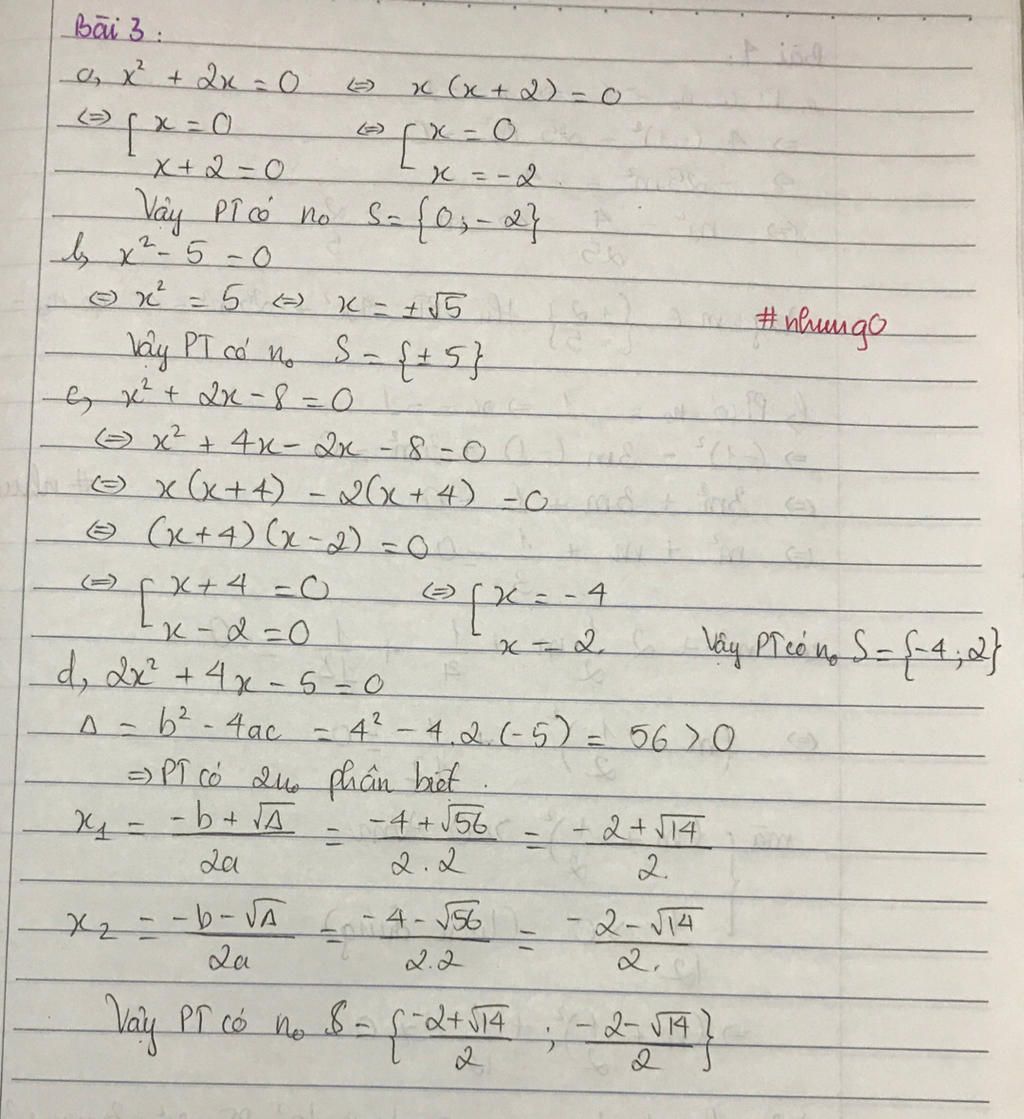 Bài 3 :
a, x² + 2x = 0 ⇔ x (x + 2) = 0
⇔ [ x = 0 ⇔ [ x = 0
x + 2 = 0 x = -2.
Vậy PT có no S = {0; -2}
b, x² - 5 = 0
⇔ x² = 5 ⇔ x = ±√5
#nhung0
Vậy PT có no S = {± 5}
c, x² + 2x - 8 = 0
⇔ x² + 4x - 2x - 8 = 0
⇔ x(x+4) - 2(x+4) = 0
⇔ (x+4)(x-2) = 0
⇔ [ x + 4 = 0 ⇔ [ x = -4
x - 2 = 0 x = 2. Vậy PT có no S = {-4; 2}
d, 2x² + 4x - 5 = 0
Δ = b² - 4ac = 4² - 4.2.(-5) = 56 > 0
⇒ PT có 2no phân biệt.
x₁ = (-b + √Δ)/2a = (-4 + √56)/2.2 = (-2 + √14)/2.
x₂ = (-b - √Δ)/2a = (-4 - √56)/2.2 = (-2 - √14)/2.
Vậy PT có no S = {(-2+√14)/2 ; (-2-√14)/2}